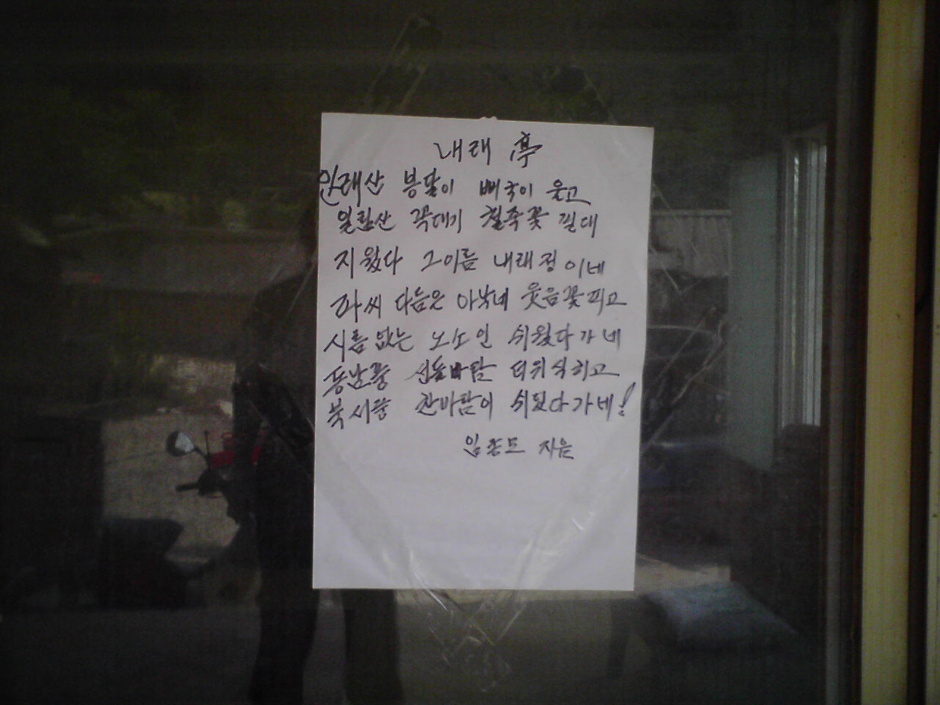 내래 亭
안래산 봉달이 뻐국이 울고
일림산 꼭대기 철죽꽃 필대
지웠다 그이름 내래정이네
마씨 다듬은 아낙네 웃음꽃피고
시름없는 노소인 쉬웠다가네
동남풍 선돌바람 더위식히고
북서풍 찬바람이 쉬웠다가네!
임종모 지음